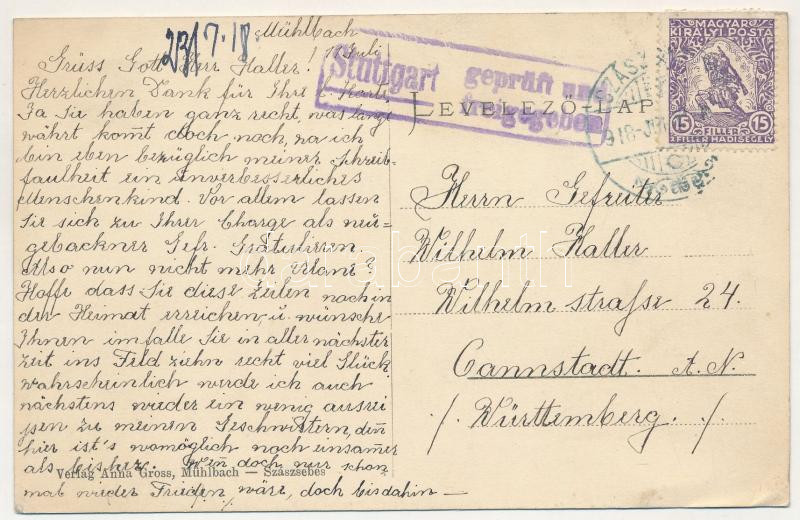 23/7.18.
Mühlbach
11. Juli
Grüss Gott Herr Haller!
Herzlichen Dank für Ihre l. Karte,
Ja Sie haben ganz recht, was lange
währt kommt doch noch, na ich
bin eben bezüglich meiner Schreib-
faulheit ein Unverbesserliches
Menschenkind. Vor allem lassen
Sie sich zu Ihrer Charge als neu-
gebackner Gefr. Gratulieren.
Also nun nicht mehr Ulane?
Hoffe dass Sie diese Zeilen noch in
der Heimat erreichen, u. wünsche
Ihnen im falle Sie in aller nächster
zeit ins Feld ziehn recht viel Glück
wahrscheinlich werde ich auch
nächstens wieder ein wenig ausrei-
ssen zu meinen Geschwistern, den
hier ist's womöglich noch einsamer
als bisher. Wen doch nur schon
mal wieder Frieden wäre, doch bis dahin —
Verlag Anna Gross, Mühlbach — Szászsebes
Stuttgart geprüft und
freigegeben
LEVELEZŐ-LAP
MAGYAR
KIRÁLYI POSTA
15 FILLER 15
2 FILLER HADISEGÉLY
SZÁSZ
918
Herrn Gefreiter
Wilhelm Haller
Wilhelm strasse 24.
Cannstadt. A. N.
/. Württemberg. ./
Darabanth